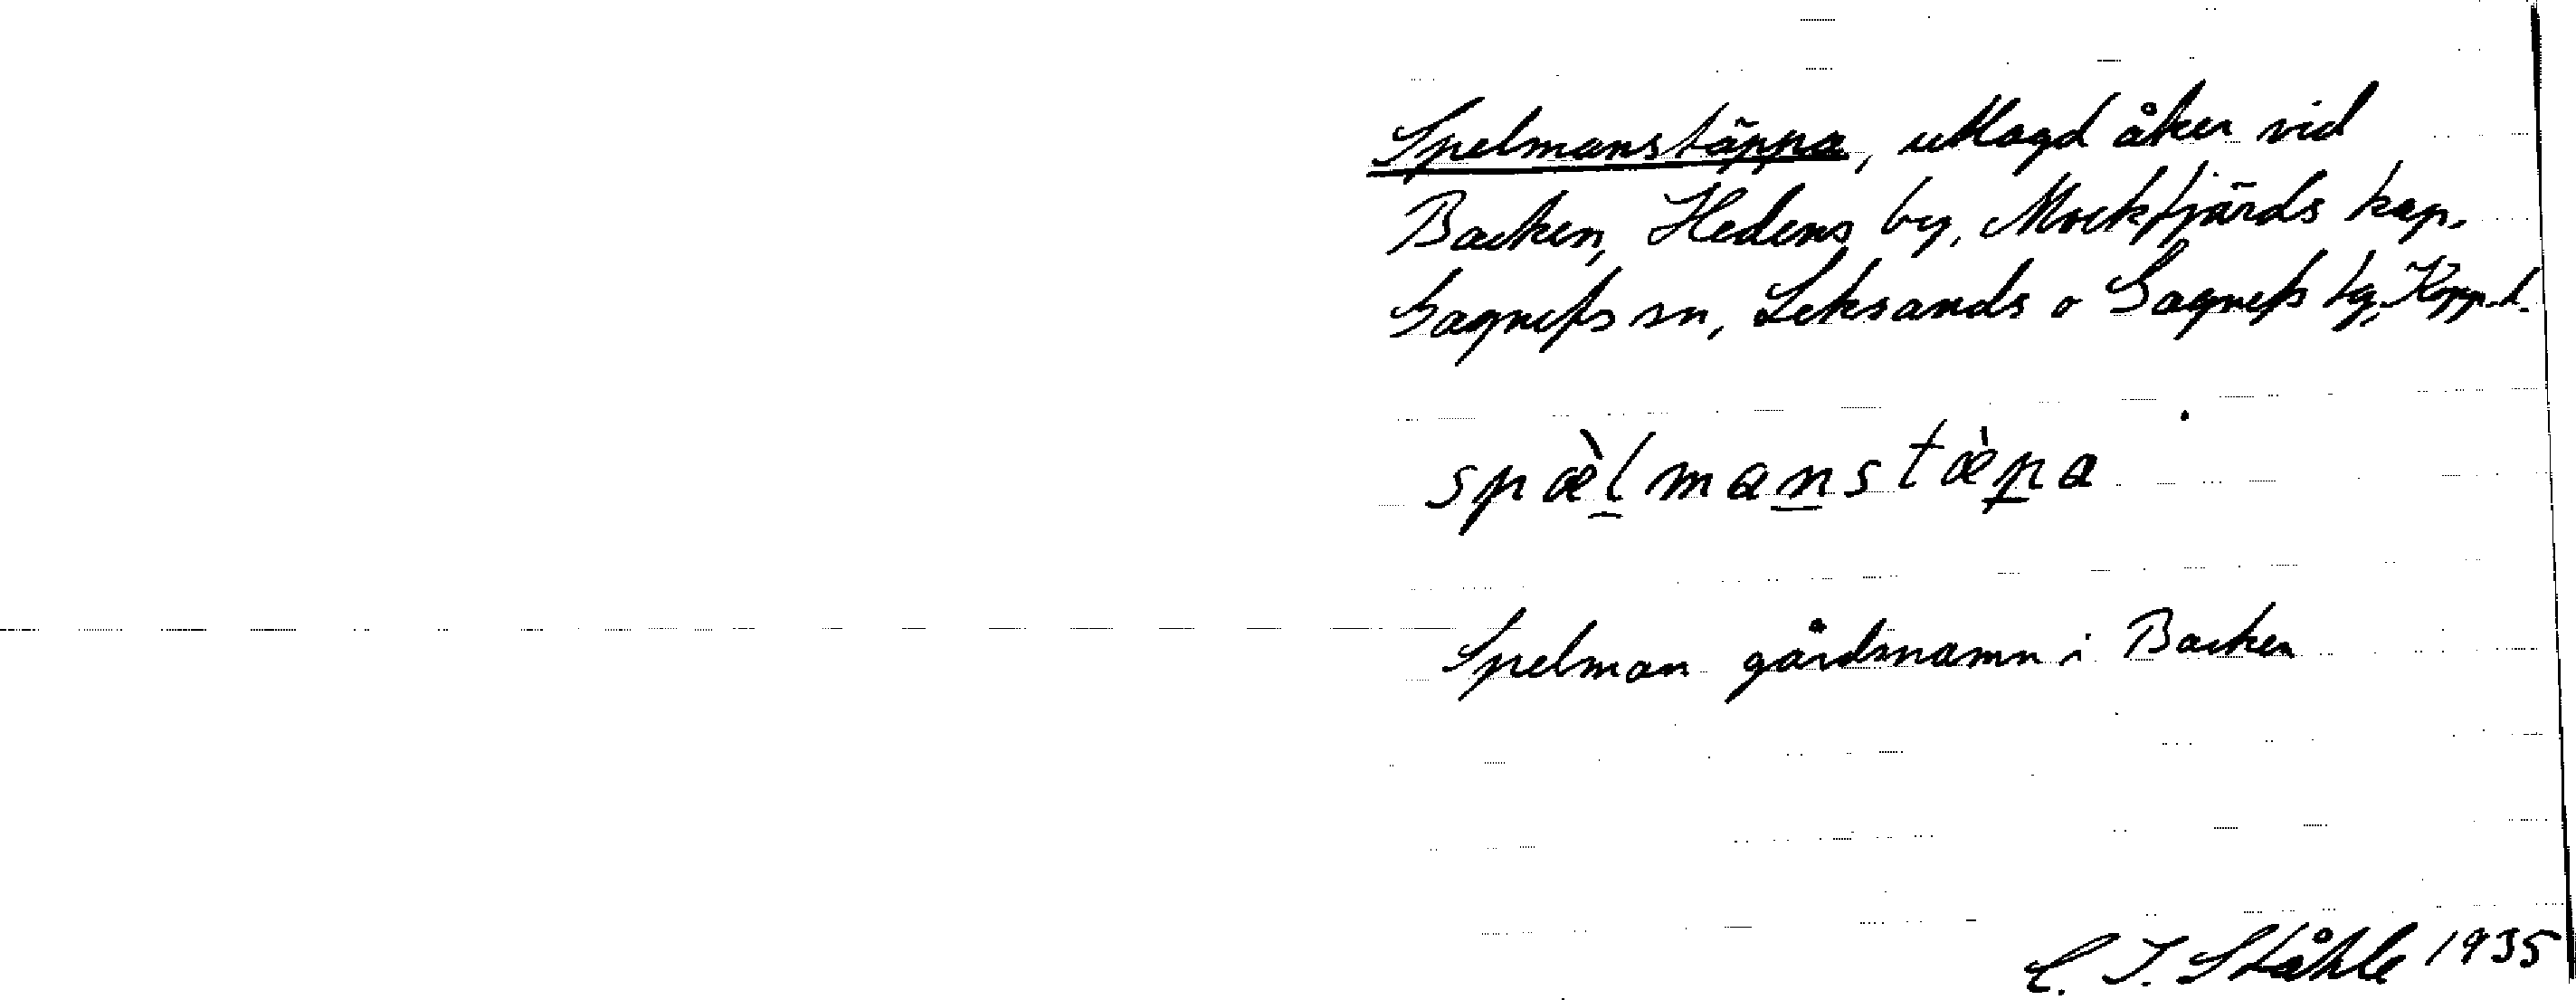 Spelmanstäppa, utlagd åker vid
Backen, Hedens by, Mockfjärds kap.
Gagnefs sn, Leksands o Gagnefs tg, Kopp. l.
spæ̀l̠mans̠tæ̀p̠a
Spelman gårdsnamn i Backen
C. I. Ståhle 1935